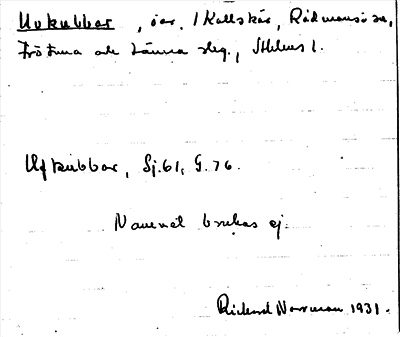 Uvkubbar, öar, / Kallskär, Rådmansö sn,
Frötuna och Länna slg., Sthlms l.
Ufkubbar, Sj.61, G.76.
Namnet brukas ej.
Rickard Norrman 1931.